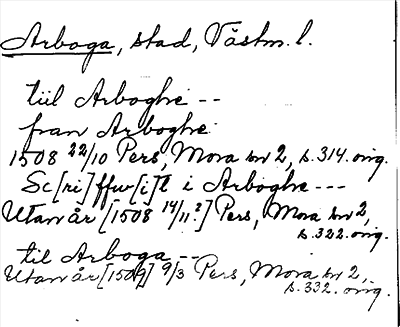 Arboga, stad, Västm. l.
tiil Arboghe --
fran Arboghe
1508 22/10 Pers, Mora nr 2, s. 314. orig.
Sc[ri]ffw[i]t i Arboghe ---
Utan år [1508 14/11?] Pers, Mora nr 2,
s. 322. orig.
til Arboga --
Utan år [1509] 9/3 Pers, Mora nr 2,
s. 332. orig.